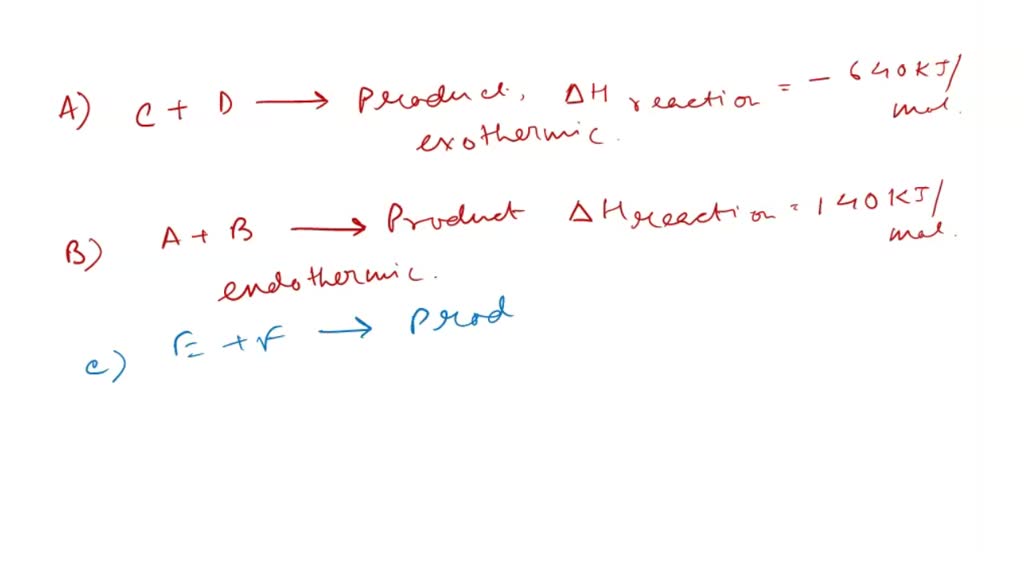 A) C + D ⟶ Product, ΔH reaction = - 640 KJ/mol.
exothermic.
B) A + B ⟶ Product ΔH reaction = 140 KJ/mol.
endothermic.
c) E + F ⟶ Prod